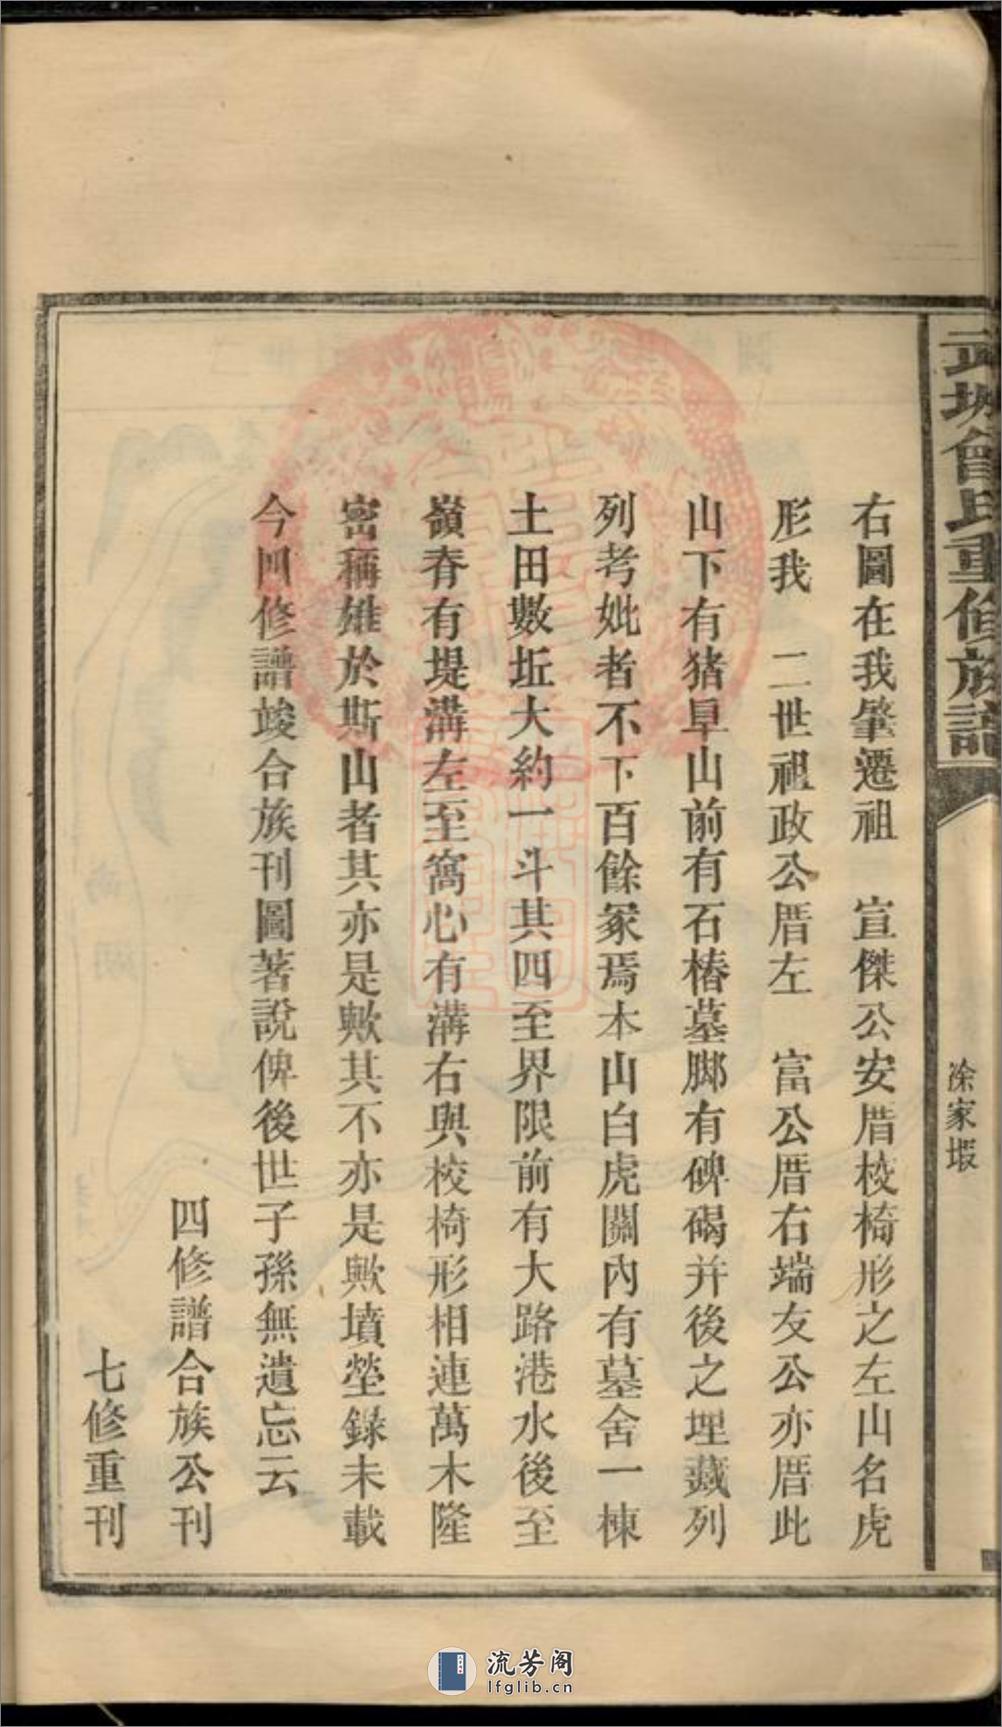 武城曾氏重修族譜
涂家塅
右圖在我肇遷祖　宣傑公安厝校椅形之左山名虎
形我　二世祖政公厝左　富公厝右端友公亦厝此
山下有猪早山前有石樁墓脚有碑碣并後之埋藏列
列考妣者不下百餘冢焉本山白虎關內有墓舍一棟
土田數坵大約一斗其四至界限前有大路港水後至
嶺脊有堤溝左至窩心有溝右與校椅形相連萬木隆
密稱雄於斯山者其亦是歟其不亦是歟墳塋錄未載
今四修譜竣合族刊圖著說俾後世子孫無遺忘云
四修譜合族公刊
七修重刊
流芳阁
lfglib.cn